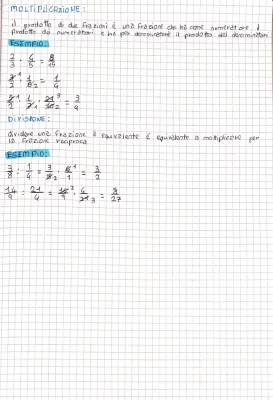 MOLTIPLICAZIONE:
il prodotto di due frazioni è una frazione che ha come numeratore il
prodotto dei numeratori e ha per denominatore il prodotto dei denominatori
ESEMPIO:
2/3 · 4/5 = 8/15
1/2 = 1/4
= 3/4
DIVISIONE:
dividere una frazione è equivalente è equivalente a moltiplicare per
la frazione reciproca
ESEMPIO:
3/8 : 1/4 = 3/8 · 4/1 = 3/2
14/9 : 21/4 = = 8/27